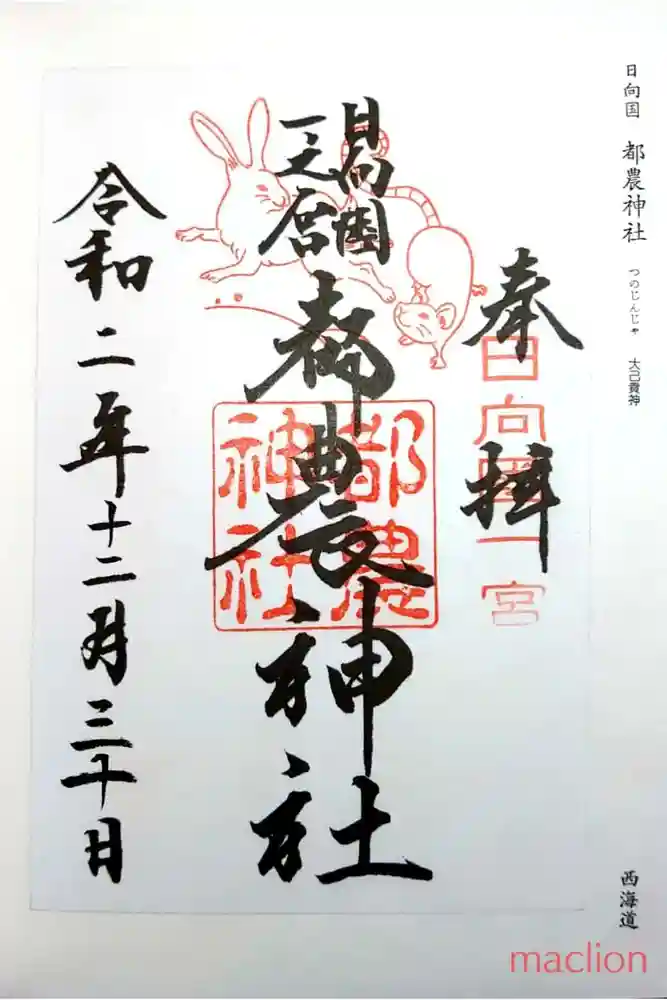 日向国 都農神社 つのじんじゃ 大己貴神
西海道
奉拝
日向國一宮
日向国
一之宮
都農神社
都農神社
令和二年十二月三十日
maclion